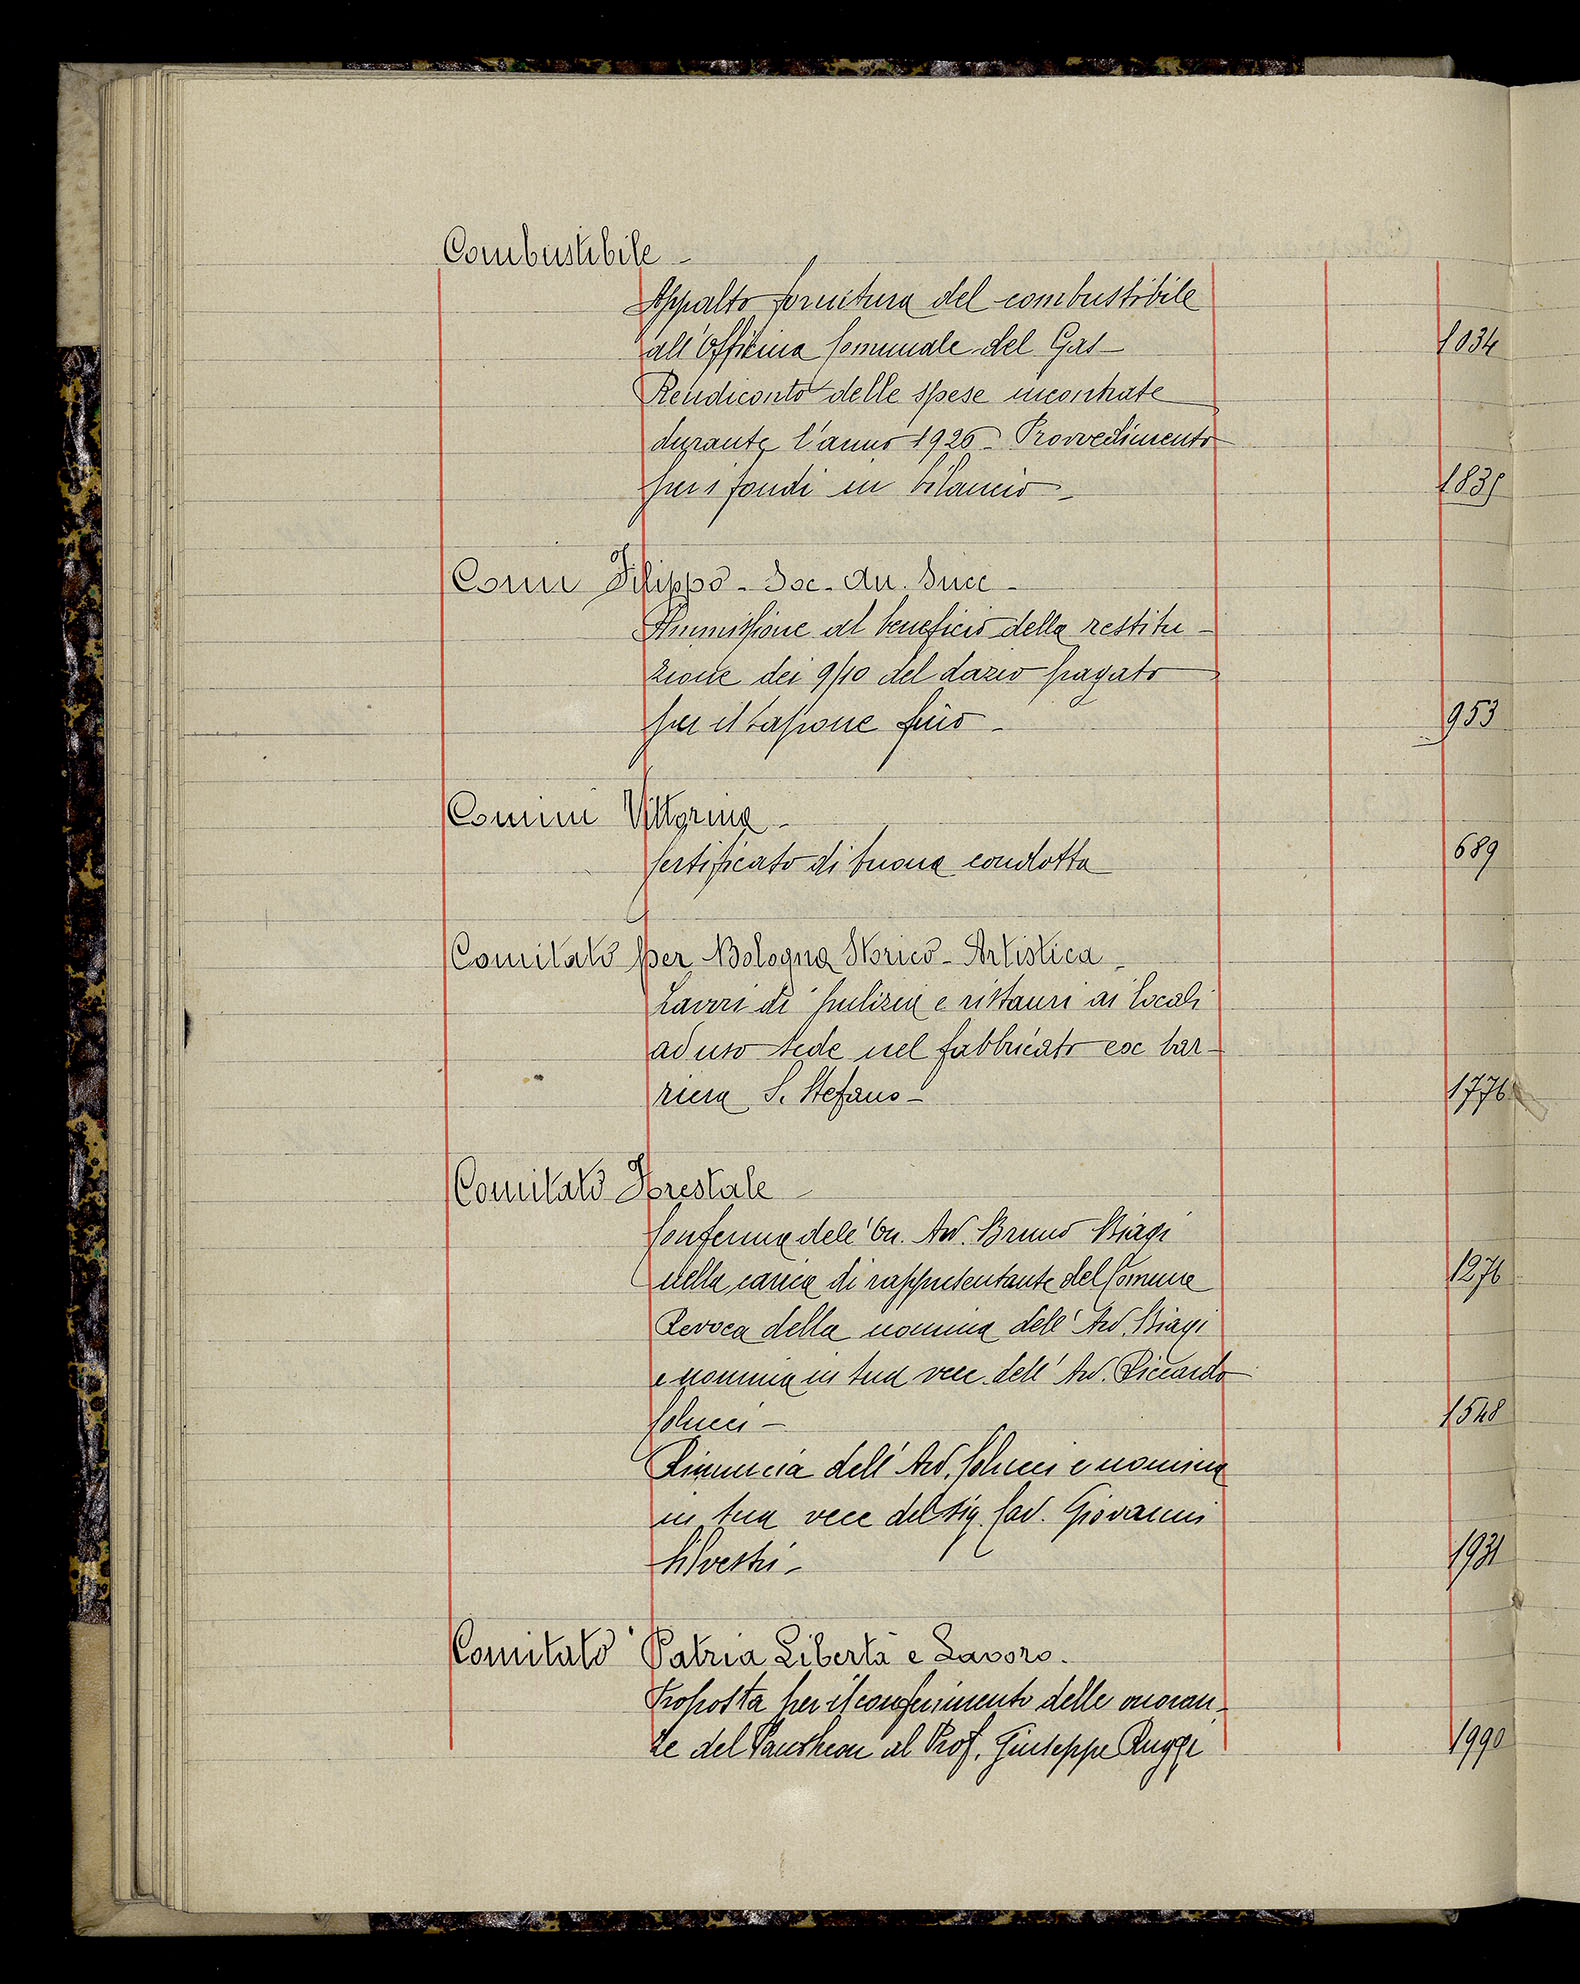 Combustibile -
Appalto fornitura del combustibile
all'Officina Comunale del Gas - 1034
Rendiconto delle spese incontrate
durante l'anno 1926 - Provvedimento
per i fondi in bilancio - 1835
Comi Filippo - Soc. An. Succ -
Ammissione al beneficio della restitu -
zione dei 9/10 del dazio pagato
per il sapone fino - 953
Comini Vittorina -
Certificato di buona condotta 689
Comitato per Bologna Storico - Artistica -
Lavori di pulizia e ristauri ai locali
ad uso sede nel fabbricato ex bar -
riera S. Stefano - 1776
Comitato Forestale -
Conferma dell'On. Avv. Bruno Biagi
nella carica di rappresentante del Comune 1276
Revoca della nomina dell'Avv. Biagi
e nomina in sua vece dell'Avv. Riccardo
Colucci - 1548
Rinuncia dell'Avv. Colucci e nomina
in sua vece del Sig. Cav. Giovanni
Silvestri - 1931
Comitato Patria Libertà e Lavoro.
Proposta per il conferimento delle onoran -
ze del Pantheon al Prof. Giuseppe Ruggi 1990